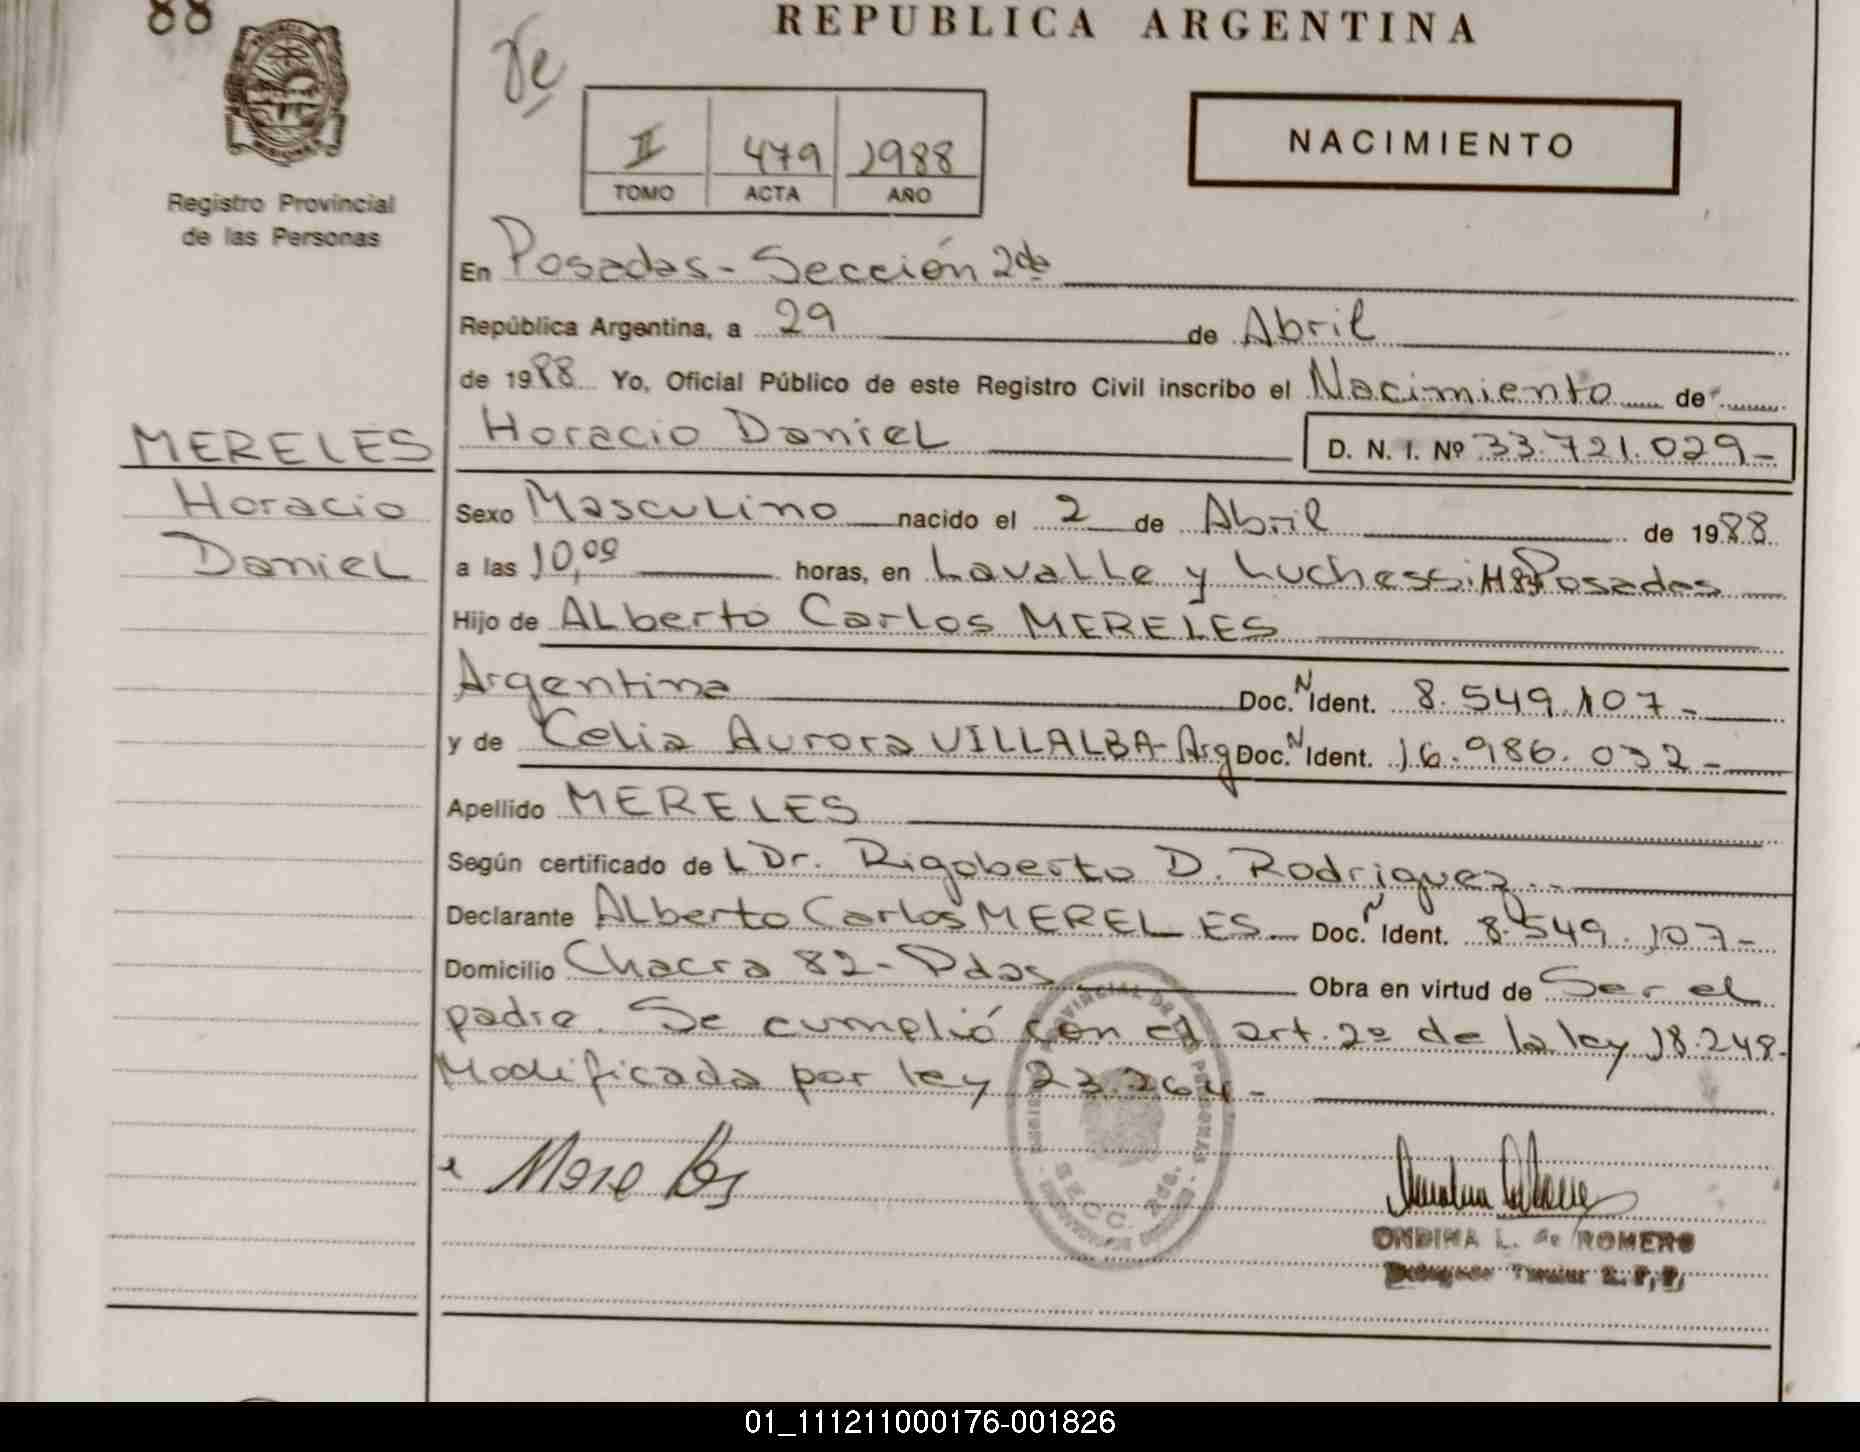 88
REPUBLICA ARGENTINA
II 479 1988
TOMO ACTA AÑO
NACIMIENTO
Registro Provincial
de las Personas
En Posadas - Sección 2da
República Argentina, a 29 de Abril
de 1988 Yo, Oficial Público de este Registro Civil inscribo el Nacimiento de
MERELES
Horacio
Daniel
Horacio Daniel D. N. I. Nº 33.721.029-
Sexo Masculino nacido el 2 de Abril de 1988
a las 10,00 horas, en Lavalle y Luchessi Posadas
Hijo de Alberto Carlos MERELES
Argentina Doc. N Ident. 8.549.107-
y de Celia Aurora VILLALBA - Arg Doc. N Ident. 16.986.032-
Apellido MERELES
Según certificado de L Dr. Rigoberto D. Rodriguez.-
Declarante Alberto Carlos MERELES. Doc. N Ident. 8.549.107-
Domicilio Chacra 82 - Pdas Obra en virtud de Ser el
padre. Se cumplió con el art. 2º de la ley 18.248.
Modificada por ley 23.264-
PROVINCIAL DE LAS PERSONAS
SECC. 2da.
Mereles
ONDINA L. de ROMERO
01_111211000176-001826